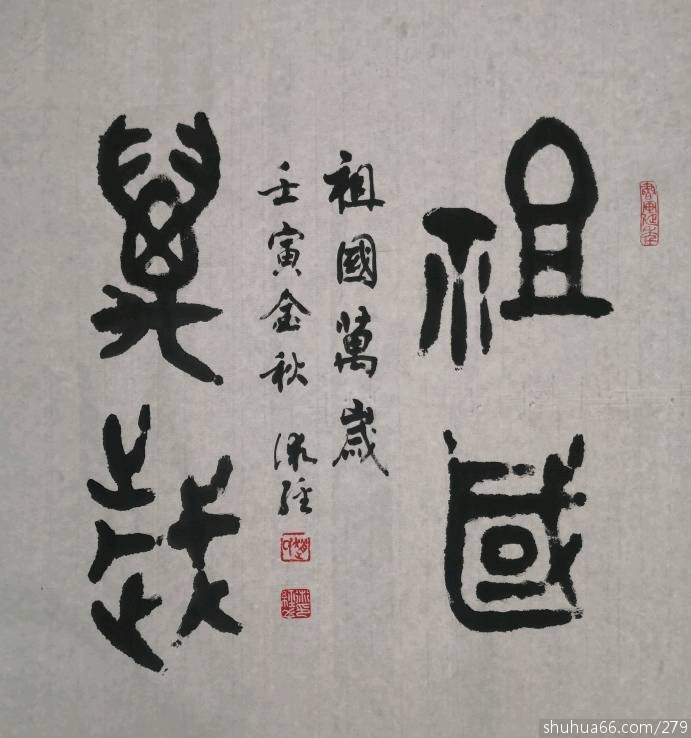 祖國
萬歲
祖國萬歲
壬寅金秋
shuhua66.com/279